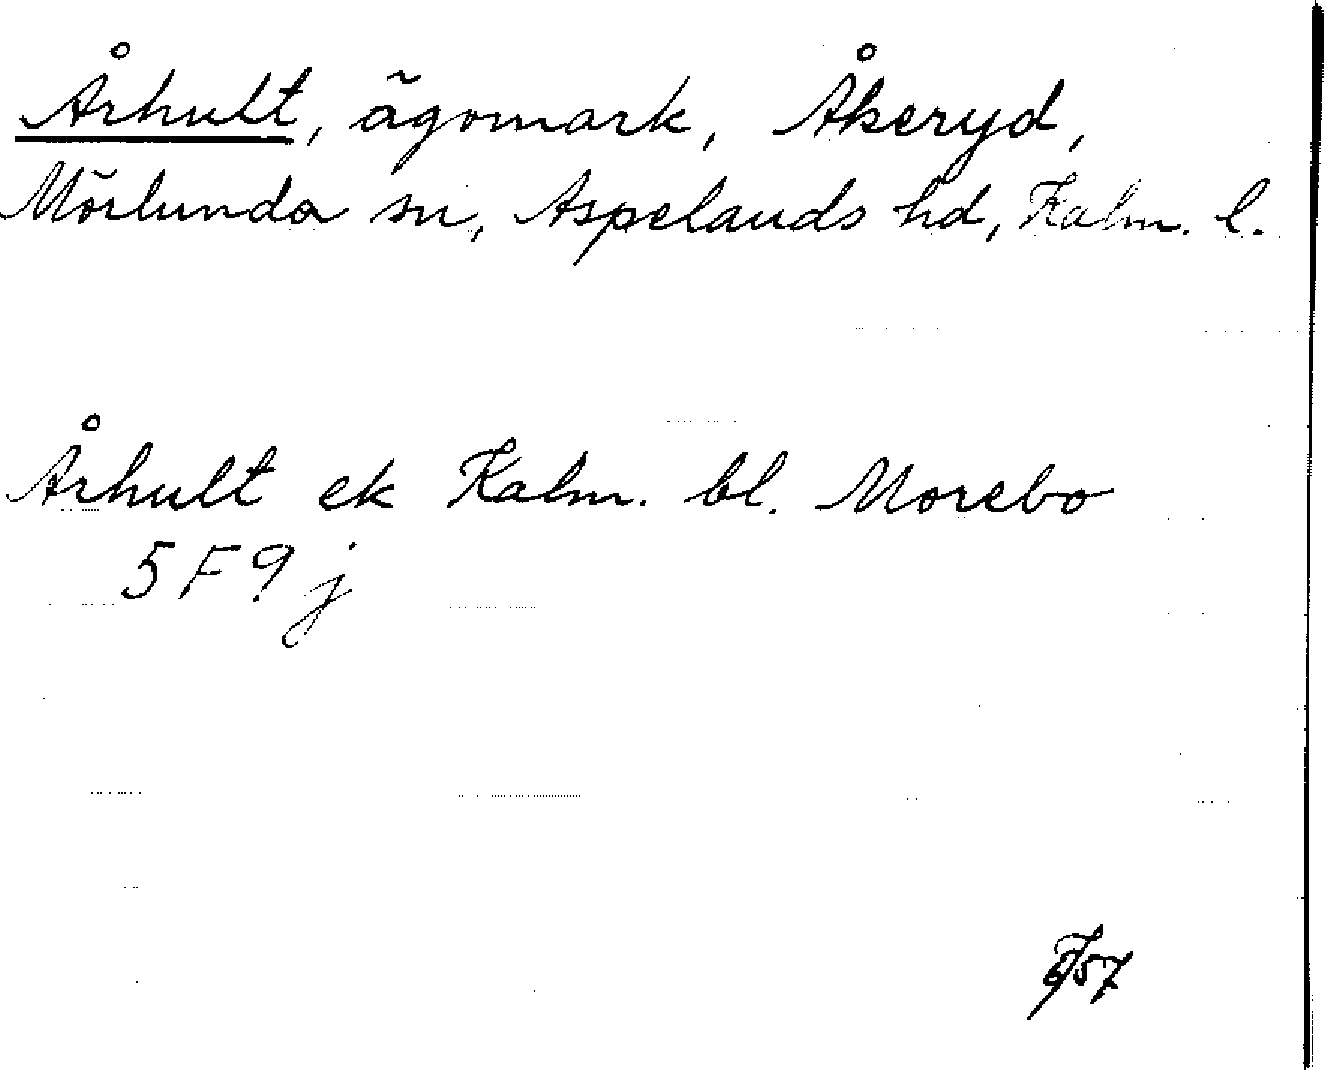 Århult, ägomark, Åkeryd,
Mörlunda sn, Aspelands hd, Kalm. l.
Århult ek Kalm. bl. Morebo
5F9j